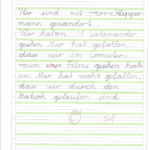 Wir sind mit Herrn Klepper
mann gewandert.
Wir haben 11 Salamander
gesehen Mir hat gefallen,
dass wir im Computer
raum Filme gesehen hab
en. Mir hat nicht gefallen,
dass wir durch den
Matsch gelaufen sind.